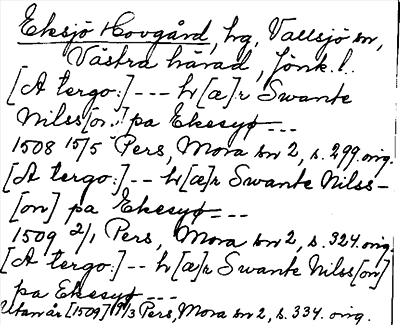 Eksjö Hovgård, hg, Vallsjö sn,
Västra härad, Jönk. l.
[A tergo:] --- h[æ]r Swante
Nilss[on] pa Ekesyø ---
1508 15/5 Pers, Mora sn 2, s. 299. orig.
[A tergo:] --- h[æ]r Swante Nilss-
[on] pa Ekesyø ---
1509 2/1 Pers, Mora sn 2, s. 324. orig.
[A tergo:] -- h[æ]r Swante Nilss[on]
pa Ekesyø ---
Utan år [1509] 19/3 Pers, Mora sn 2, s. 334. orig.